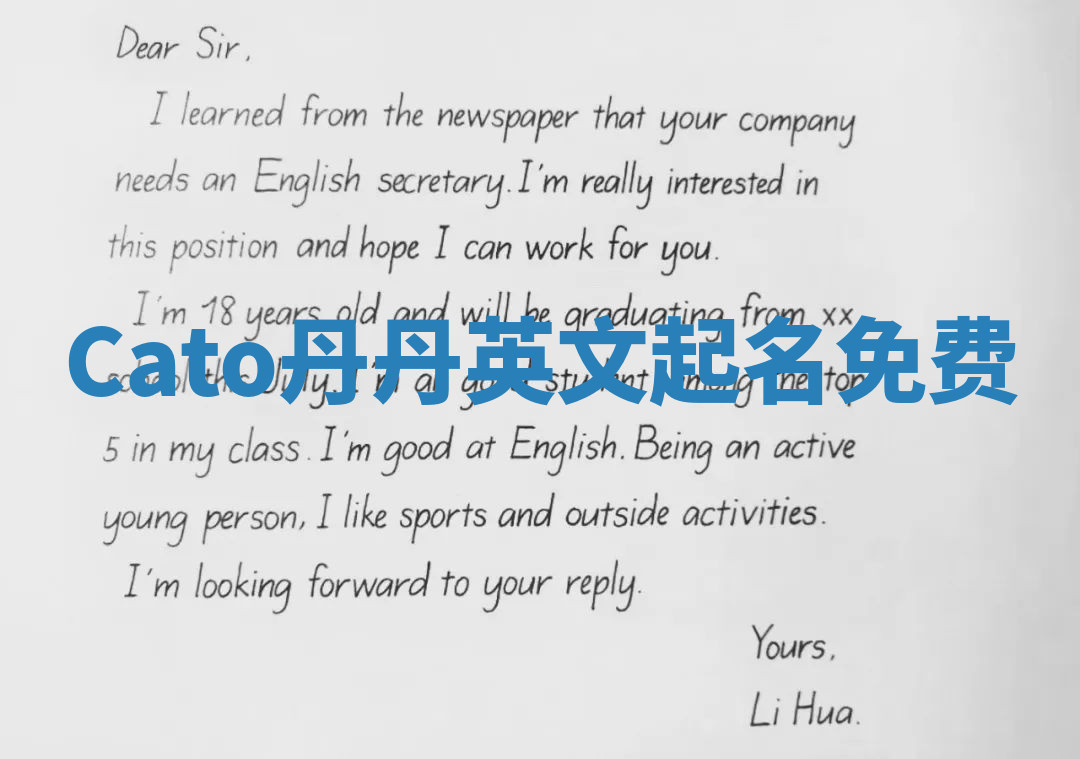 Dear Sir,
I learned from the newspaper that your company
needs an English secretary. I'm really interested in
this position and hope I can work for you.
I'm 18 years old and will be graduating from xx
Cato丹丹英文起名免费
school this July. I'm a good student among the top
5 in my class. I'm good at English. Being an active
young person, I like sports and outside activities.
I'm looking forward to your reply.
Yours,
Li Hua.